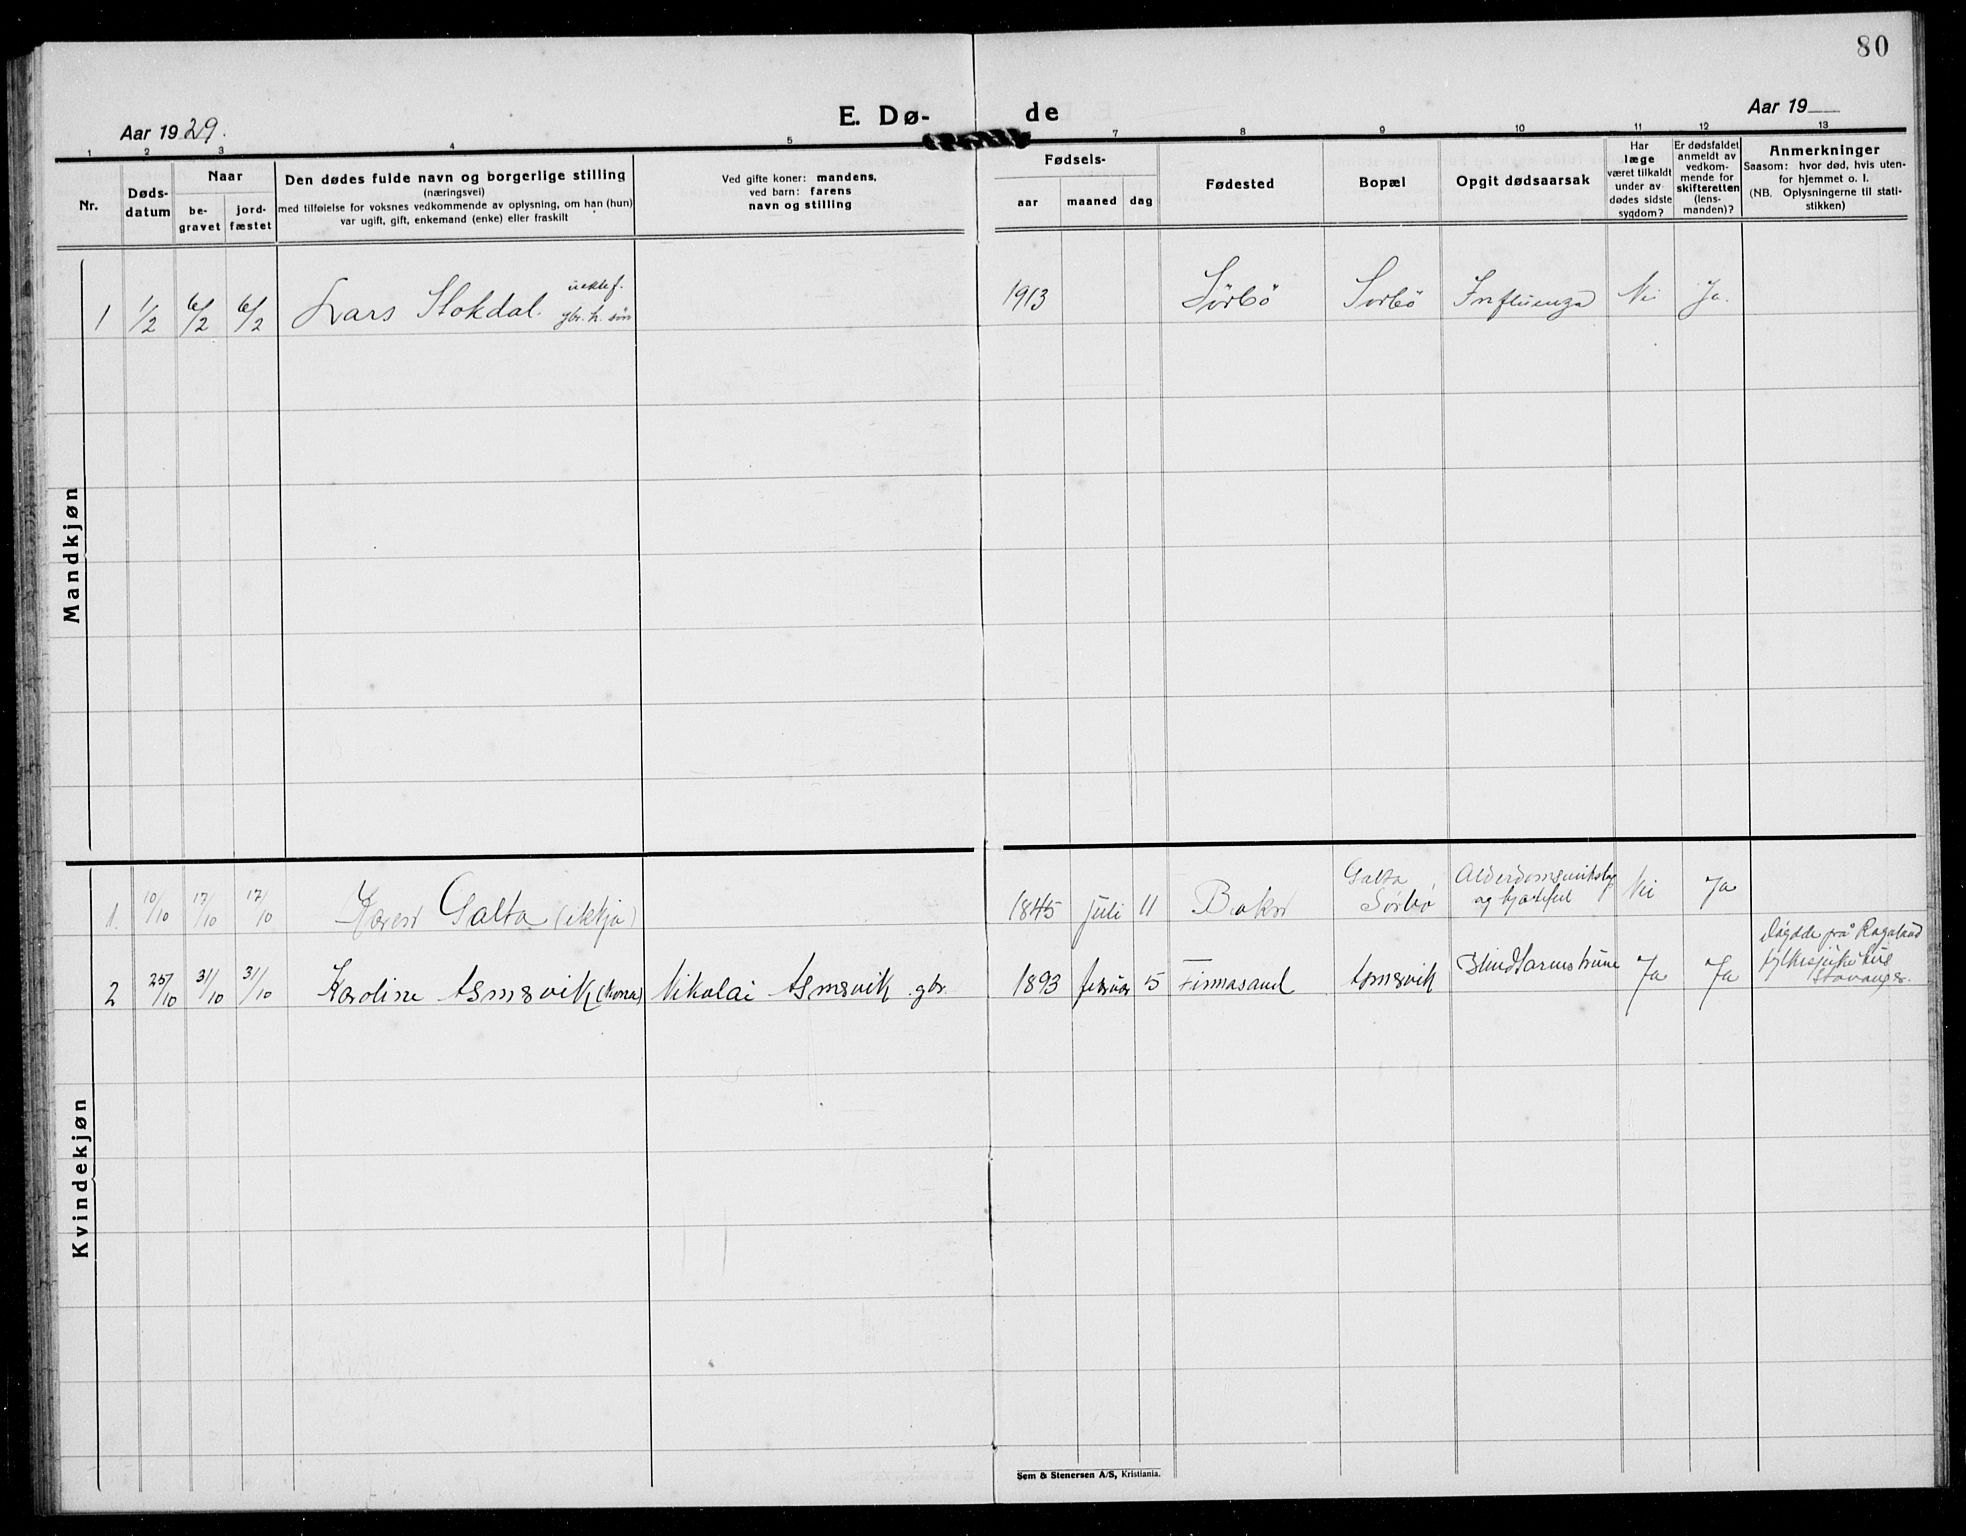 80
Aar 1929.
E. Dø-
de
Aar 19
1 2 3 4 5 7 8 9 10 11 12 13
Nr.
Døds-
datum
Naar
be-
gravet
jord-
fæstet
Den dødes fulde navn og borgerlige stilling
(næringsvei)
med tilføielse for voksnes vedkommende av oplysning, om han (hun)
var ugift, gift, enkemand (enke) eller fraskilt
Ved gifte koner: mandens,
ved barn: farens
navn og stilling
Fødsels-
aar maaned dag
Fødested
Bopæl
Opgit dødsaarsak
Har
læge
været tilkaldt
under av-
dødes sidste
sygdom?
Er dødsfaldet
anmeldt av
vedkom-
mende for
skifteretten
(lens-
manden)?
Anmerkninger
Saasom: hvor død, hvis uten-
for hjemmet o. l.
(NB. Oplysningerne til stati-
stikken)
Mandkjøn
1 1/2 6/2 6/2 Lars Stokdal gbr. h. søn 1913 Sørbø Sørbø Influenza Nei Ja.
Kvindekjøn
1. 10/10 17/10 17/10 Karen Galta (ekkja) 1845 juli 11 Bokn Galta
Sørbø
og hjertefeil Nei Ja
2 25/10 31/10 31/10 Karoline Asmervik (kona) Nikolai Asmervik gbr. 1893 februar 5 Finnasand Asmervik Blindtarmsbetennelse Ja Ja
Døydde på Rogaland
fylkessjukehus
Stavanger.
Sem & Stenersen A/S, Kristiania.